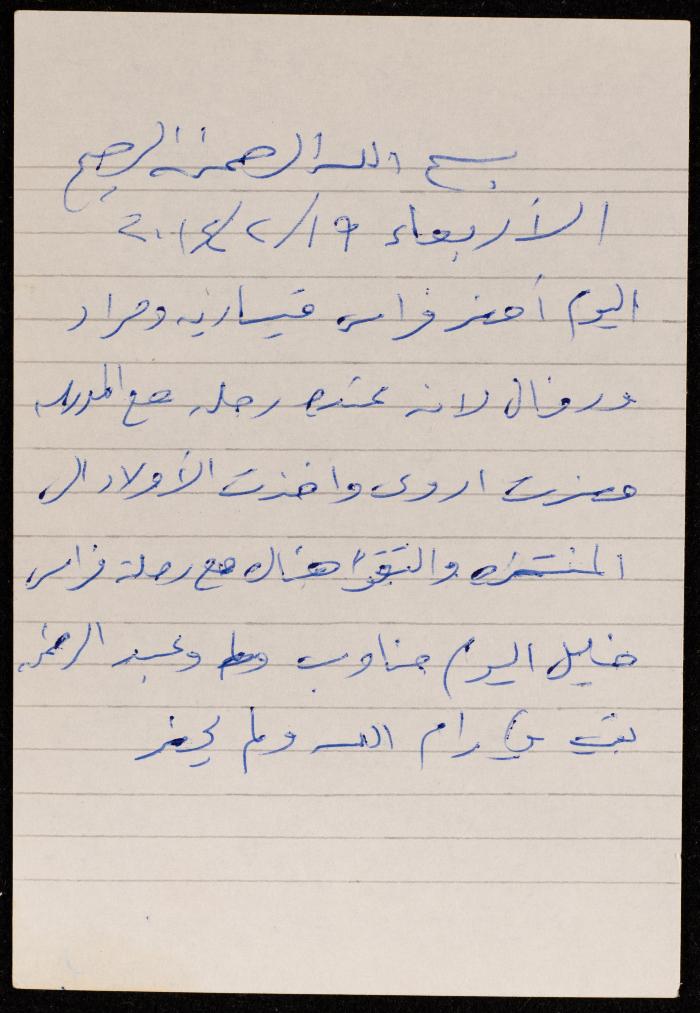 بسم الله الرحمن الرحيم
الأربعاء ١٩/٢/٢٠١٤
اليوم أحضر فراس قيسارية ومراد
ونوال لانه عنده رحلة مع المدرسة
حضرت اروى واخذت الأولاد الى
المنتزه والتقوا هناك مع رحلة فراس
خليل اليوم مناوب وعبد الرحمن
بقي في رام الله ولم يحضر